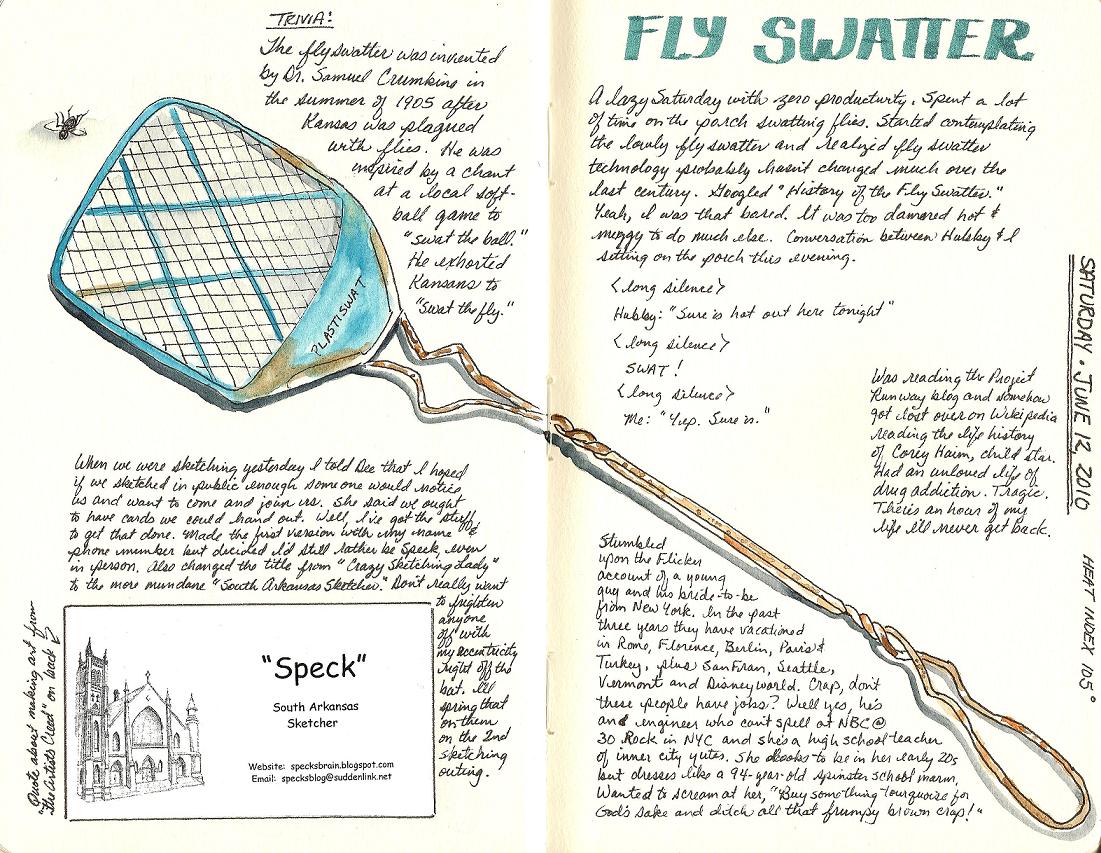 TRIVIA:
The flyswatter was invented
by Dr. Samuel Crumkins in
the summer of 1905 after
Kansas was plagued
with flies. He was
inspired by a chant
at a local soft-
ball game to
"swat the ball."
He exhorted
Kansans to
"Swat the fly."
PLASTISWAT
When we were sketching yesterday I told Dee that I hoped
if we sketched in public enough someone would notice
us and want to come and join us. She said we ought
to have cards we could hand out. Well, I've got the stuff
to get that done. Made the first version with my name &
phone number but decided I'd still rather be Speck, even
in person. Also changed the title from "Crazy Sketching Lady"
to the more mundane "South Arkansas Sketcher." Don't really want
to frighten
anyone
off with
my eccentricity
right off the
bat. I'll
spring that
on them
on the 2nd
sketching
outing.
Quote about making art from
"The Artist's Creed" on back
"Speck"
South Arkansas
Sketcher
Website: specksbrain.blogspot.com
Email: specksblog@suddenlink.net
FLY SWATTER
A lazy Saturday with zero producturty. Spent a lot
of time on the porch swatting flies. Started contemplating
the lowly fly swatter and realized fly swatter
technology probably hasn't changed much over the
last century. Googled "History of the Fly Swatter."
Yeah, I was that bored. It was too damned hot &
muggy to do much else. Conversation between Hubby & I
sitting on the porch this evening.
<long silence>
Hubby: "Sure is hot out here tonight"
<long silence>
SWAT!
<long silence>
Me: "Yep. Sure is."
Was reading the Project
Runway blog and somehow
got lost over on Wikipedia
reading the life history
of Corey Haim, child star.
Had an unloved life of
drug addiction. Tragic.
There's an hour of my
life I'll never get back.
SATURDAY · JUNE 12, 2010
HEAT INDEX 105°
Stumbled
upon the Flicker
account of a young
guy and his bride-to-be
from New York. In the past
three years they have vacationed
in Rome, Florence, Berlin, Paris &
Turkey, plus San Fran, Seattle,
Vermont and Disneyworld. Crap, don't
these people have jobs? Well yes, he's
and engineer who can't spell at NBC @
30 Rock in NYC and she's a high school teacher
of inner city yutes. She looks to be in her early 20s
but dresses like a 94-year-old spinster school marm.
Wanted to scream at her, "Buy something tourquoise for
God's sake and ditch all that frumpy brown crap!"